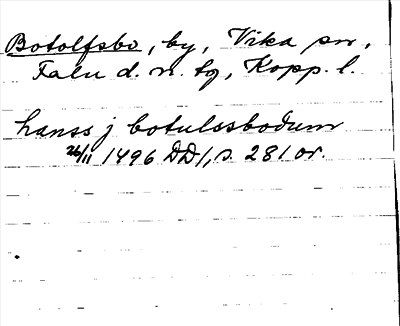 Botolfsbo, by, Vika sn,
Falu d. n. tg, Kopp. l.
hanss j botulssbodum
26/11 1496 DD1, s. 281 or.